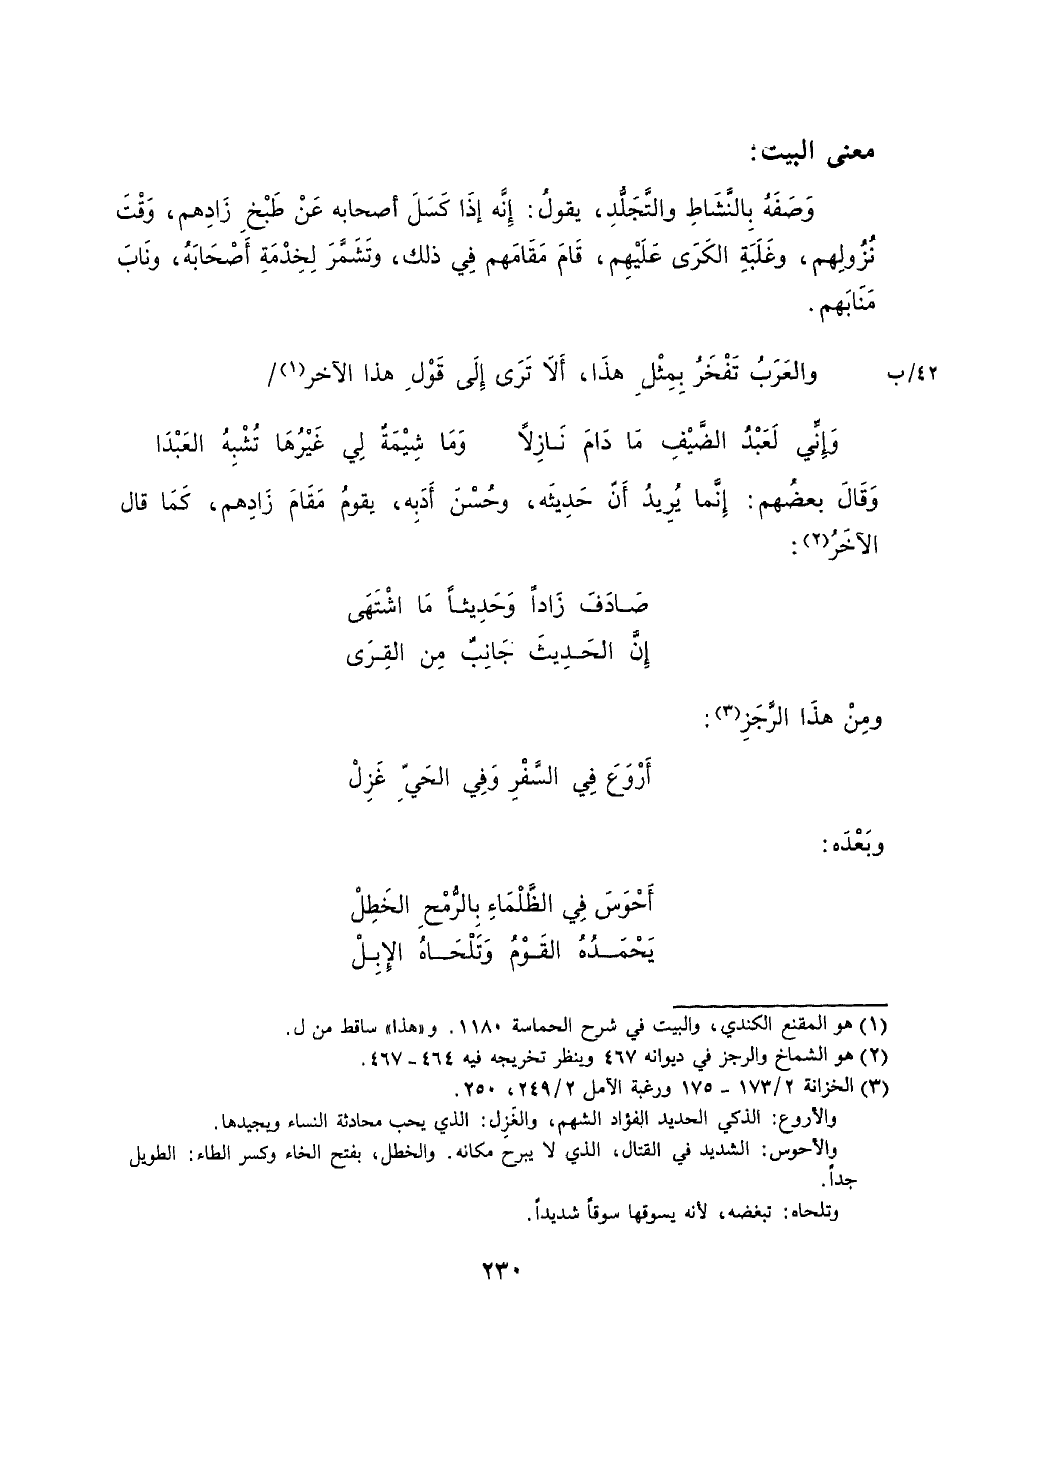 معنى البيت:
وَصَفَهُ بِالنَّشَاطِ والتَّجَلُّدِ، يقولُ: إِنَّه إذَا كَسَلَ أصحابه عَنْ طَبْخِ زَادِهم، وَقْتَ
نُزُولِهم، وغَلَبَةِ الكَرَى عَلَيْهِم، قَامَ مَقَامَهم فِي ذلك، وتَشَمَّرَ لِخِدْمَةِ أَصْحَابَهُ، ونَابَ
مَنَابَهم.
٤٢/ب والعَرَبُ تَفْخَرُ بِمِثْلِ هذَا، أَلَا تَرَى إلَى قَوْلِ هذا الآخر(١)/
وَإِنِّي لَعَبْدُ الضَّيْفِ مَا دَامَ نَازِلاً وَمَا شِيْمَةٌ لِي غَيْرُهَا تُشْبِهُ العَبْدَا
وَقَالَ بعضُهم: إِنَّما يُرِيدُ أَنَّ حَدِيثَه، وحُسْنَ أَدَبِه، يقومُ مَقَامَ زَادِهم، كَمَا قال
الآخَرُ(٢):
صَادَفَ زَاداً وَحَدِيثاً مَا اشْتَهَى
إِنَّ الحَدِيثَ جَانِبٌ مِن القِرَى
ومِنْ هذَا الرَّجَزِ(٣):
أَرْوَعَ فِي السَّفْرِ وَفِي الحَيِّ غَزِلْ
وبَعْدَه:
أَحْوَسَ فِي الظَّلْمَاءِ بِالرُّمْحِ الخَطِلْ
يَحْمَدُهُ القَوْمُ وَتَلْحَاهُ الإِبِلْ
(١) هو المقنع الكندي، والبيت في شرح الحماسة ١١٨٠. و«هذا» ساقط من ل.
(٢) هو الشماخ والرجز في ديوانه ٤٦٧ وينظر تخريجه فيه ٤٦٤ - ٤٦٧.
(٣) الخزانة ١٧٣/٢ - ١٧٥ ورغبة الآمل ٢٤٩/٢، ٢٥٠.
والأروع: الذكي الحديد الفؤاد الشهم، والغَزِل: الذي يحب محادثة النساء ويجيدها.
والأحوس: الشديد في القتال، الذي لا يبرح مكانه. والخطل، بفتح الخاء وكسر الطاء: الطويل
جداً.
وتلحاه: تبغضه، لأنه يسوقها سوقاً شديداً.
٢٣٠